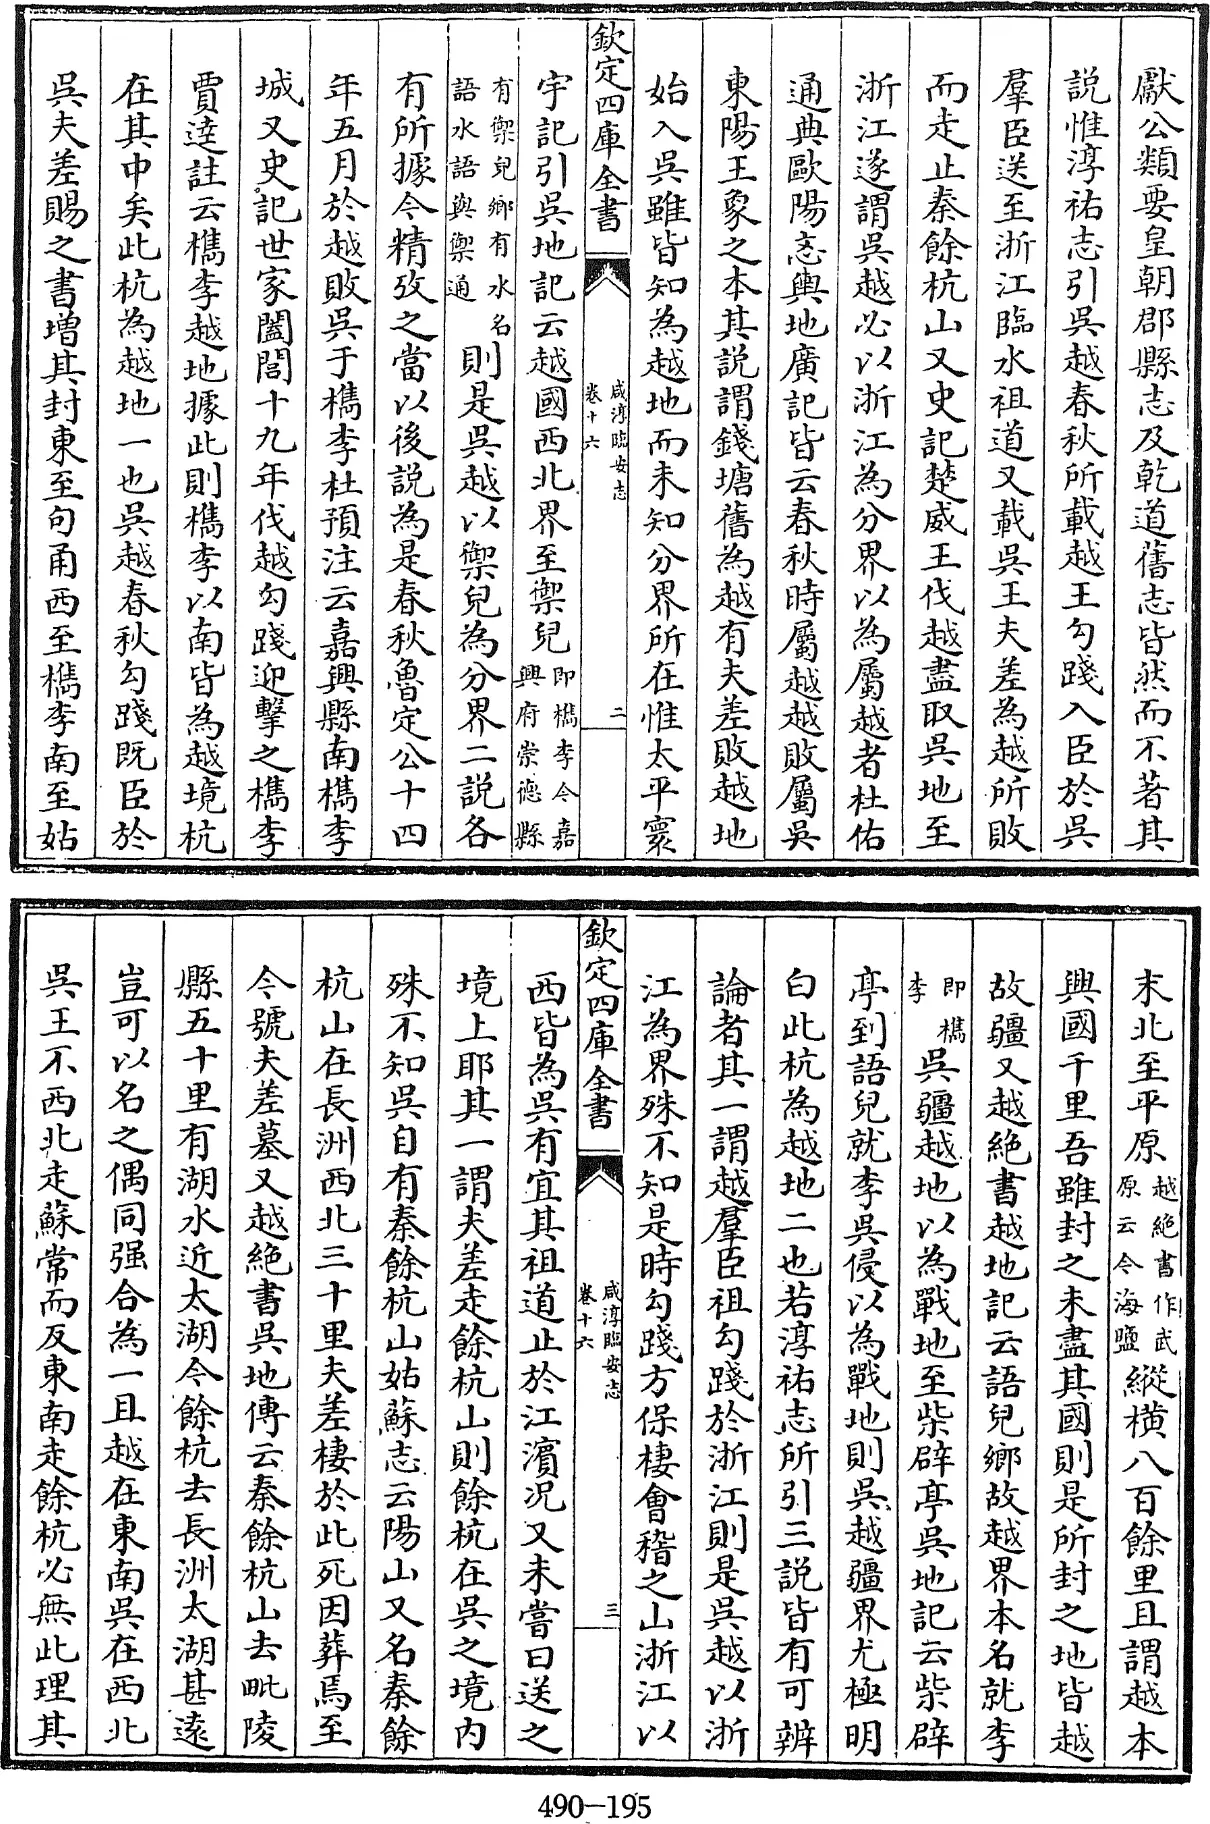 獻公類要皇朝郡縣志及乾道舊志皆然而不著其
説惟淳祐志引吳越春秋所載越王勾踐入臣於吳
羣臣送至浙江臨水祖道又載吳王夫差為越所敗
而走止秦餘杭山又史記楚威王伐越盡取吳地至
浙江遂謂吳越必以浙江為分界以為屬越者杜佑
通典歐陽忞輿地廣記皆云春秋時屬越越敗屬吳
東陽王象之本其説謂錢塘舊為越有夫差敗越地
始入吳雖皆知為越地而未知分界所在惟太平寰
欽定四庫全書
咸淳臨安志
卷十六
二
宇記引吳地記云越國西北界至禦兒即檇李今嘉興府崇德縣
有禦兒鄉有水名語水語與禦通則是吳越以禦兒為分界二説各
有所據今精攷之當以後説為是春秋魯定公十四
年五月於越敗吳于檇李杜預注云嘉興縣南檇李
城又史記世家闔閭十九年伐越勾踐迎擊之檇李
賈逵註云檇李越地據此則檇李以南皆為越境杭
在其中矣此杭為越地一也吳越春秋勾踐既臣於
吳夫差賜之書增其封東至句甬西至檇李南至姑
末北至平原越絶書作武原云今海鹽縱横八百餘里且謂越本
興國千里吾雖封之未盡其國則是所封之地皆越
故疆又越絶書越地記云語兒鄉故越界本名就李
即檇李吳疆越地以為戰地至柴辟亭吳地記云柴辟
亭到語兒就李吳侵以為戰地則吳越疆界尤極明
白此杭為越地二也若淳祐志所引三説皆有可辨
論者其一謂越羣臣祖勾踐於浙江則是吳越以浙
江為界殊不知是時勾踐方保棲會稽之山浙江以
欽定四庫全書
咸淳臨安志
卷十六
三
西皆為吳有宜其祖道止於江濱况又未嘗曰送之
境上耶其一謂夫差走餘杭山則餘杭在吳之境内
殊不知吳自有秦餘杭山姑蘇志云陽山又名秦餘
杭山在長洲西北三十里夫差棲於此死因葬焉至
今號夫差墓又越絶書吳地傳云秦餘杭山去毗陵
縣五十里有湖水近太湖今餘杭去長洲太湖甚遠
豈可以名之偶同强合為一且越在東南吳在西北
吳王不西北走蘇常而反東南走餘杭必無此理其
490-195